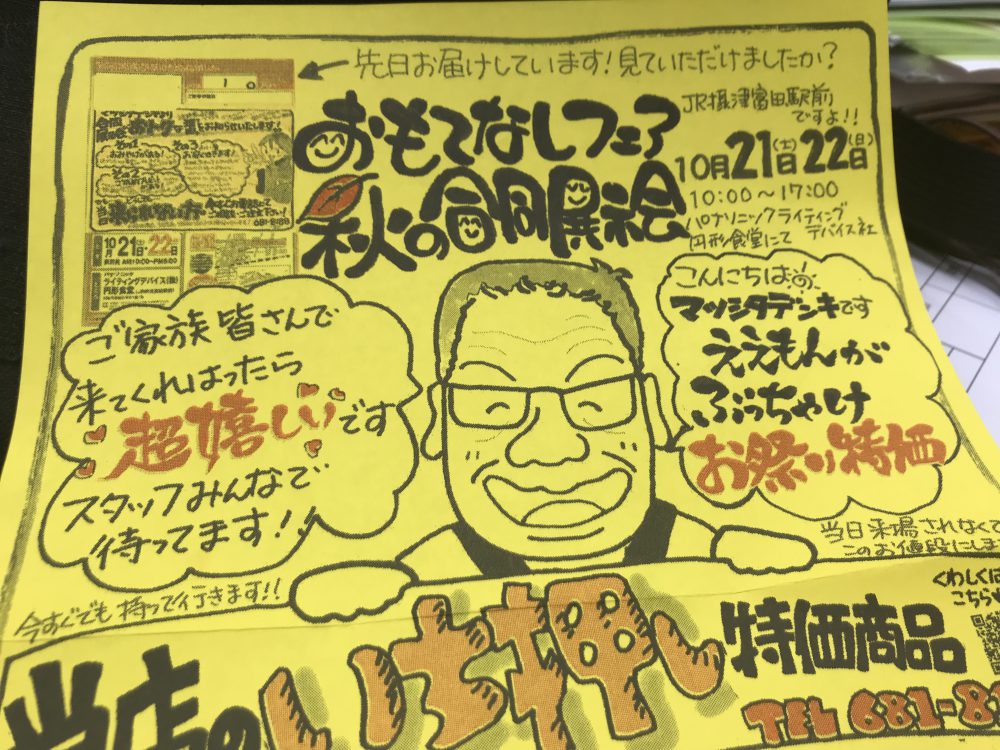 先日お届けしています!見ていただけましたか?
おもてなしフェア
秋の合同展示会
JR摂津富田駅前
ですよ!!
10月21(土)22(日)
10:00~17:00
パナソニックライティング
デバイス社
円形食堂にて
10月21・22日
ライティングデバイス(株)
円形食堂
ご家族皆さんで
来てくれはったら
超嬉しいです
スタッフみんなで
待ってます!!
こんにちは
マツシタデンキです
ええもんが
ぶっちゃけ
お祭り特価
当日来場されなくて
このお値段にしま
今すぐでも持って行きます!!
くわしくは
こちら
当店のいち押し
特価商品
TEL 681-8